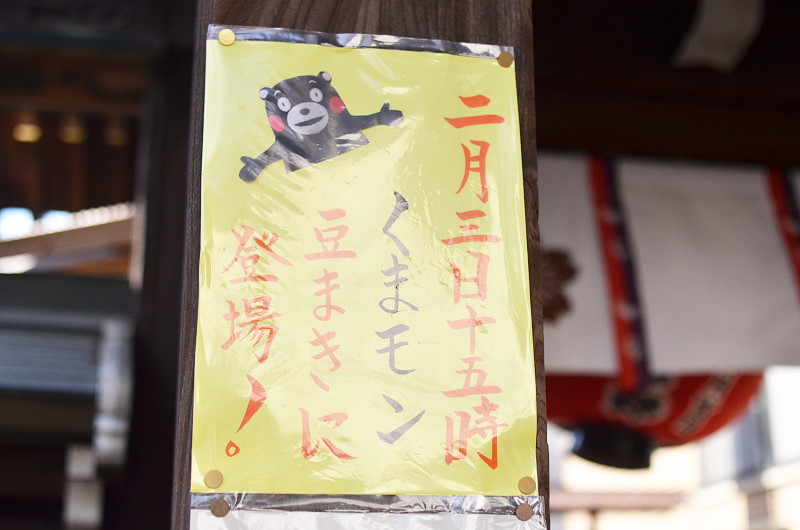 二月三日十五時
くまモン
豆まきに
登場!